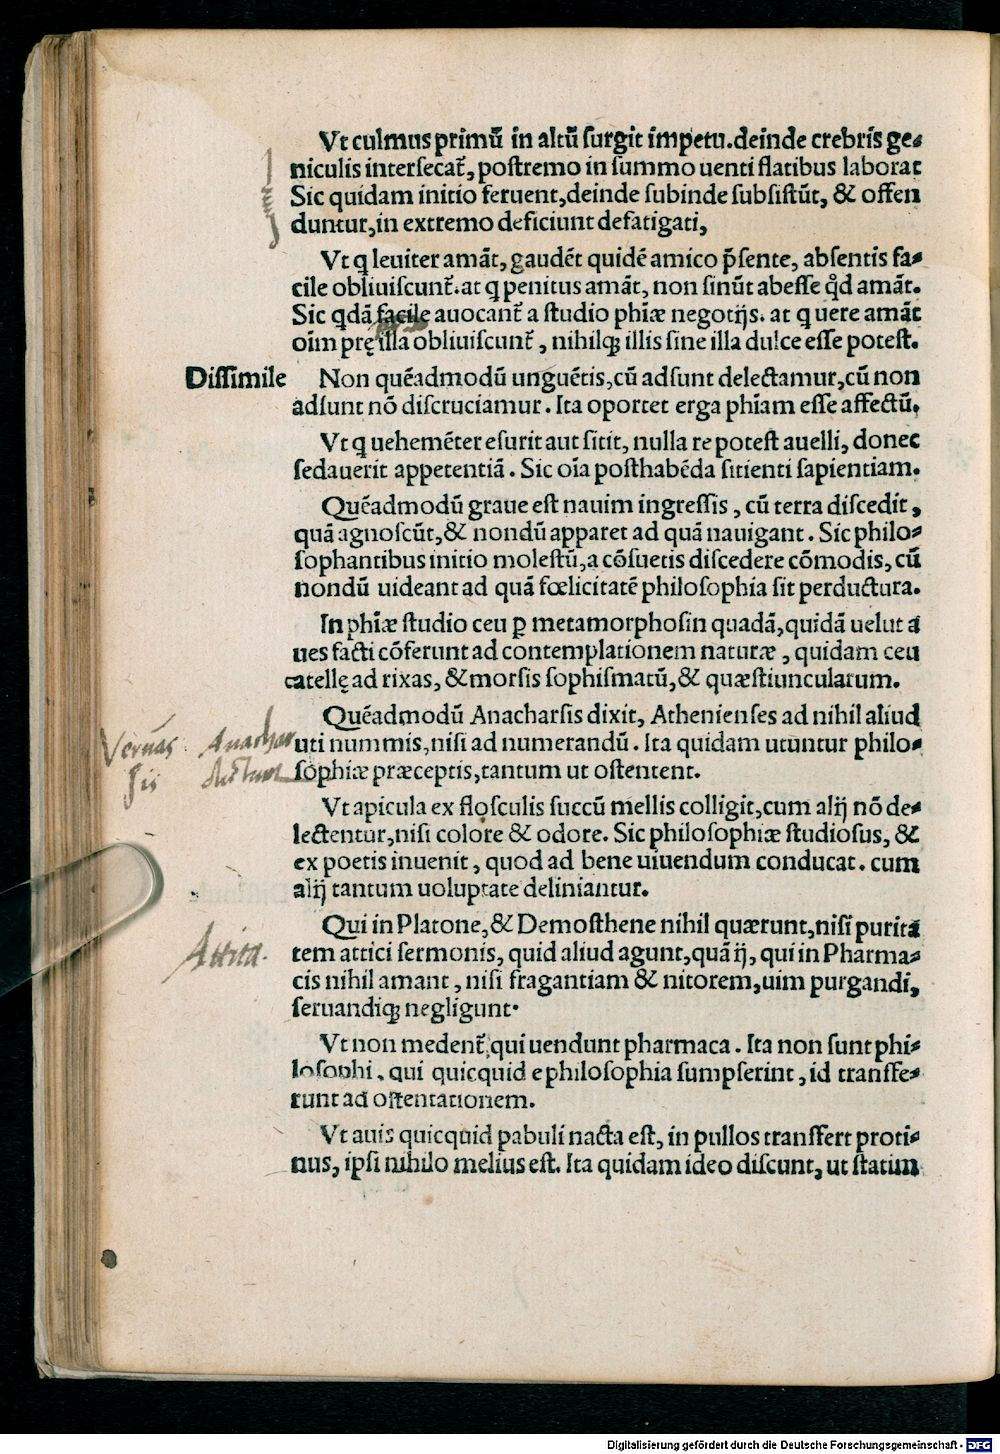 Vt culmus primū in altū surgit impetu. deinde crebris ge⸗
niculis intersecat᷑, postremo in summo uenti flatibus laborat
Sic quidam initio feruent, deinde subinde subsistūt, & offen
duntur, in extremo deficiunt defatigati,
Vt q leuiter amāt, gaudēt quidē amico p̄sente, absentis fa⸗
cile obliuiscunt᷑. at q penitus amāt, non sinūt abesse qd̓ amāt.
Sic qdā facile auocant᷑ a studio phīæ negotijs. at q uere amāt
oīm prę illa obliuiscunt᷑, nihilqꝫ illis sine illa dulce esse potest.
Dissimile Non quēadmodū unguētis, cū adsunt delectamur, cū non
adsunt nō discruciamur. Ita oportet erga phīam esse affectū.
Vt q uehemēter esurit aut sitit, nulla re potest auelli, donec
sedauerit appetentiā. Sic oīa posthabēda sitienti sapientiam.
Quēadmodū graue est nauim ingressis, cū terra discedit,
quā agnoscūt, & nondū apparet ad quā nauigant. Sic philo⸗
sophantibus initio molestū, a cōsuetis discedere cōmodis, cū
nondū uideant ad quā fœlicitatē philosophia sit perductura.
In phīæ studio ceu ꝑ metamorphosin quadā, quidā uelut a
ues facti cōferunt ad contemplationem naturæ, quidam ceu
catellę ad rixas, & morsis sophismatū, & quæstiuncularum.
Quēadmodū Anacharsis dixit, Athenienses ad nihil aliud
Anachar uti nummis, nisi ad numerandū. Ita quidam utuntur philo⸗
sis dictum sophiæ præceptis, tantum ut ostentent.
Vt apicula ex flosculis succū mellis colligit, cum alij nō de⸗
lectentur, nisi colore & odore. Sic philosophiæ studiosus, &
ex poetis inuenit, quod ad bene uiuendum conducat. cum
alij tantum uoluptate deliniantur.
Qui in Platone, & Demosthene nihil quærunt, nisi puritā
Attica. tem attici sermonis, quid aliud agunt, quā ij, qui in Pharma⸗
cis nihil amant, nisi fragantiam & nitorem, uim purgandi,
seruandiqꝫ negligunt·
Vt non medent᷑, qui uendunt pharmaca. Ita non sunt phi⸗
losophi, qui quicquid e philosophia sumpserint, id transfe⸗
runt ad ostentationem.
Vt auis quicquid pabuli nacta est, in pullos transfert proti⸗
nus, ipsi nihilo melius est. Ita quidam ideo discunt, ut statim
Digitalisierung gefördert durch die Deutsche Forschungsgemeinschaft - DFG